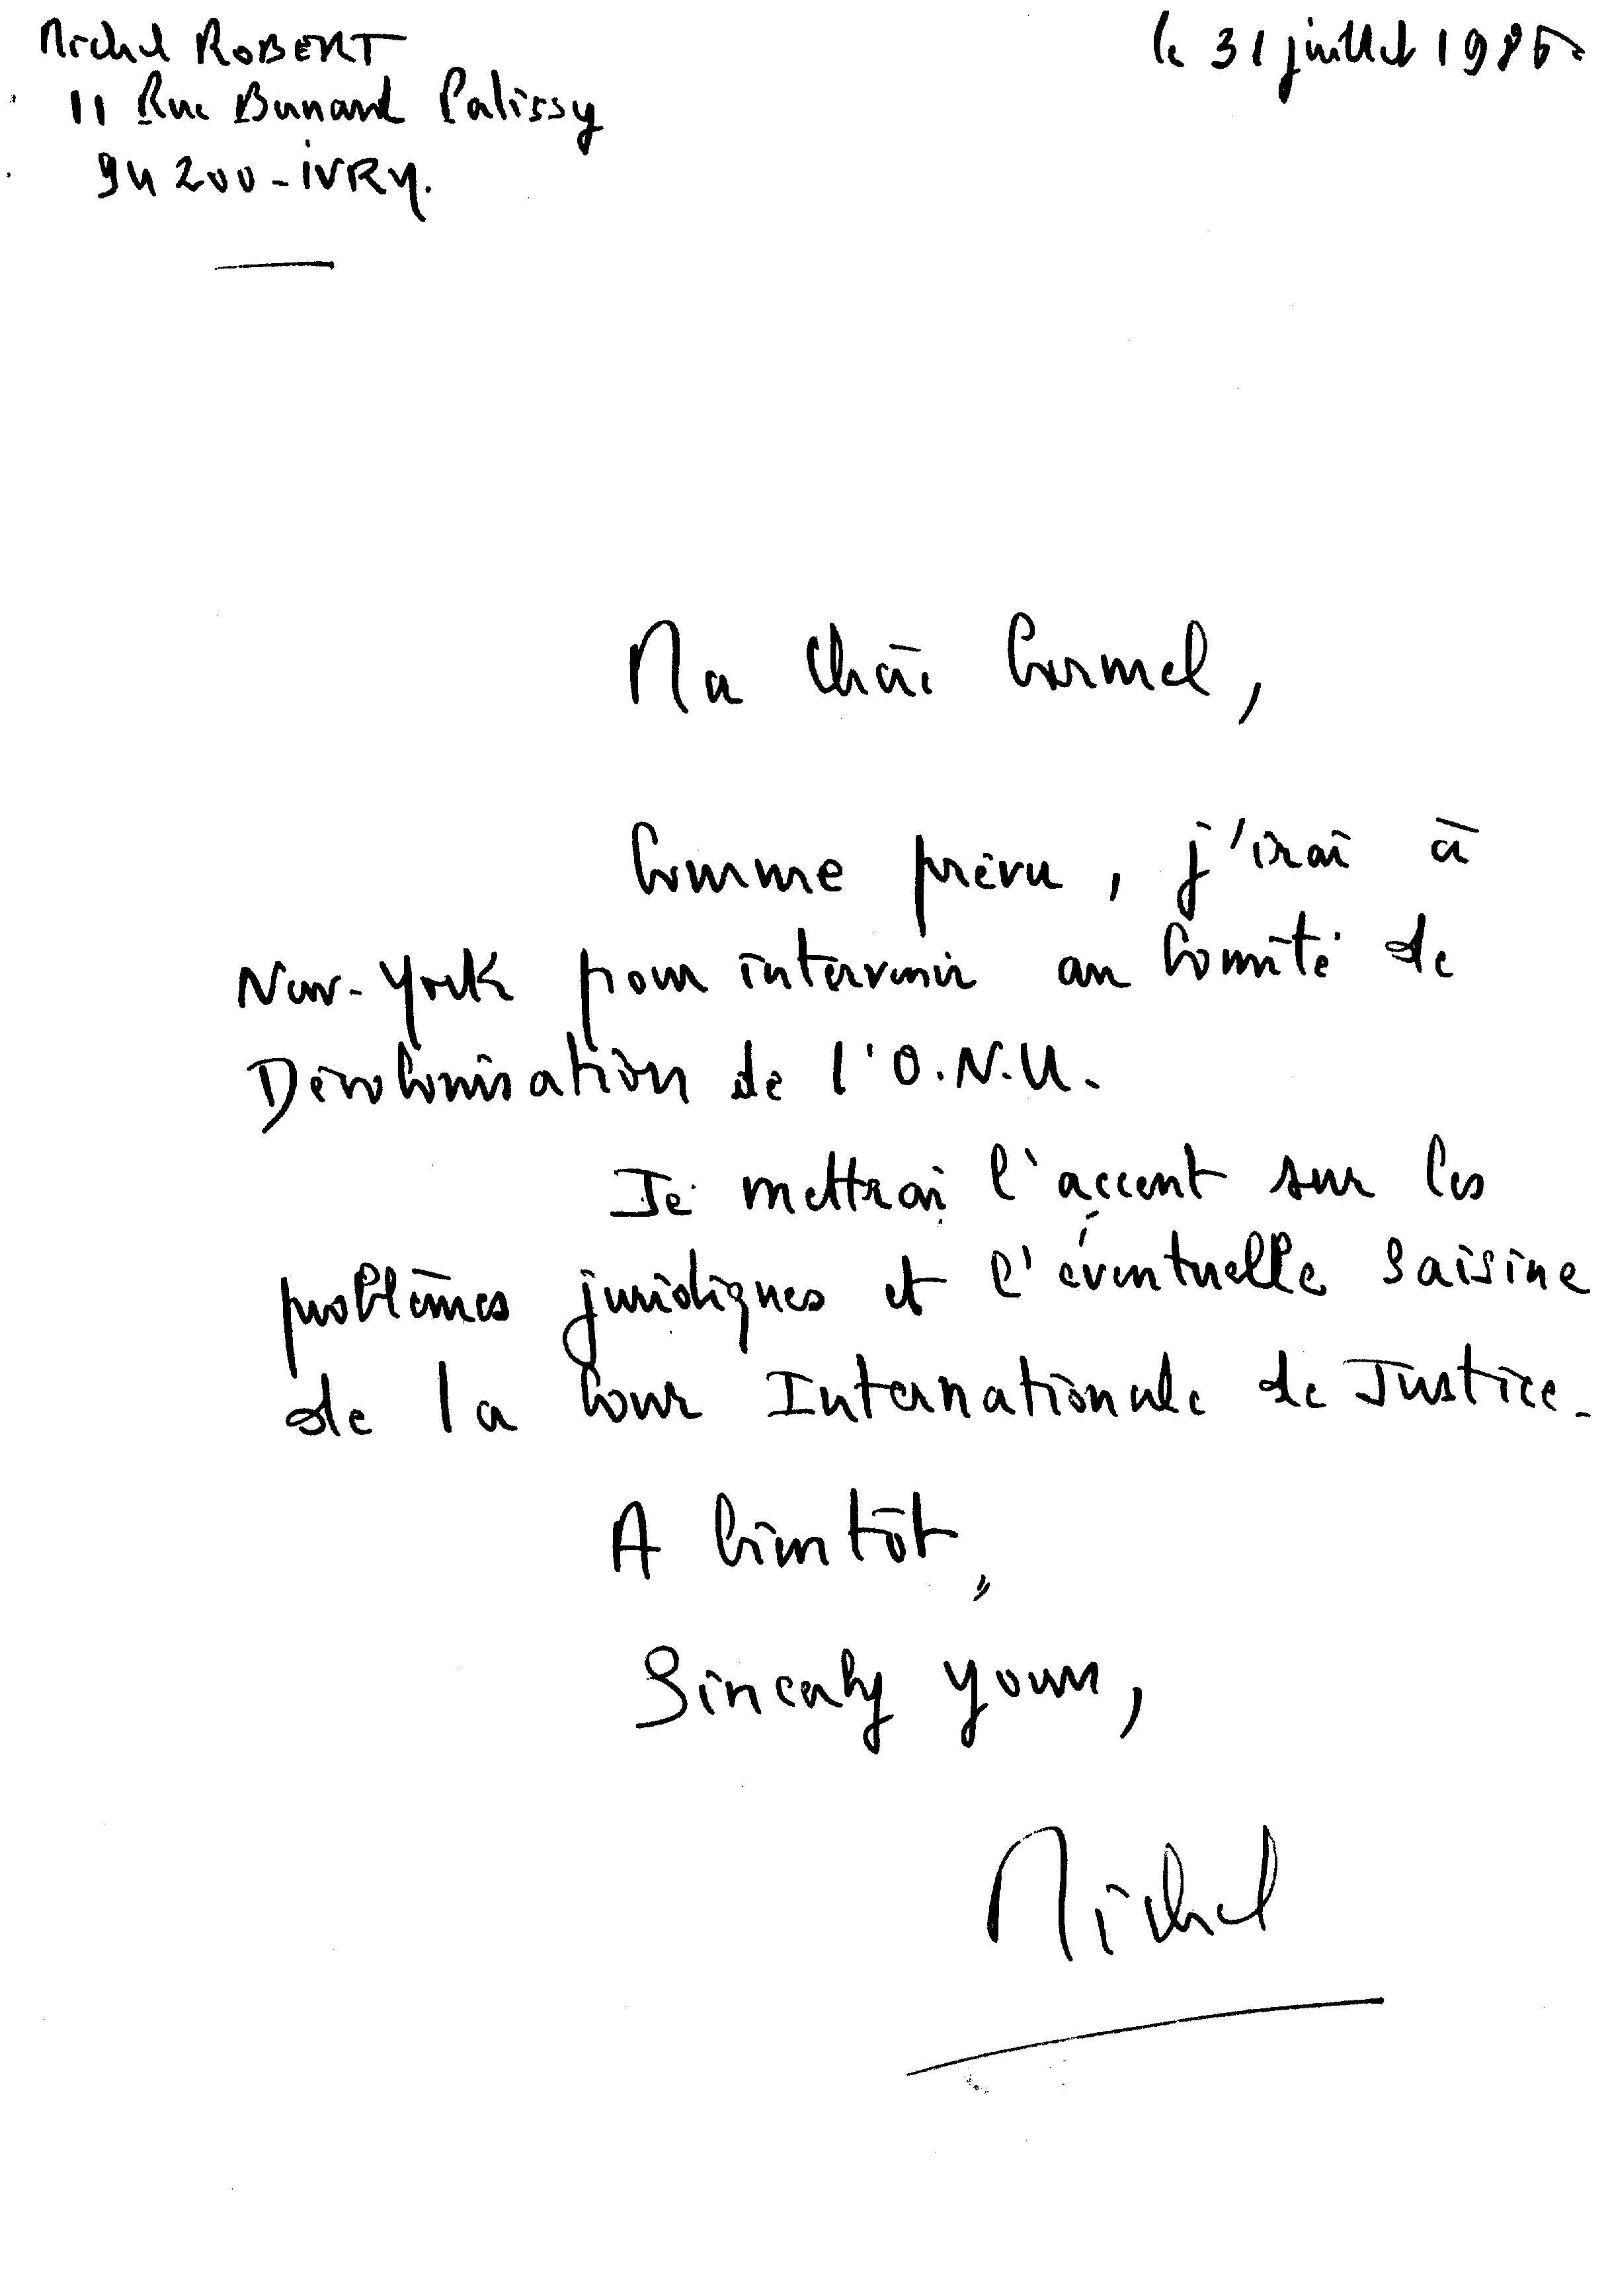 Michel ROBERT
11 Rue Bernard Palissy
94200 - IVRY.
le 31 juillet 1985
Ma chère Carmel,
Comme prévu, j'irai à
New-York pour intervenir au Comité de
Décolonisation de l'O.N.U.
Je mettrai l'accent sur les
problèmes juridiques et l'éventuelle saisine
de la Cour Internationale de Justice.
A bientôt,
Sincerely yours,
Michel